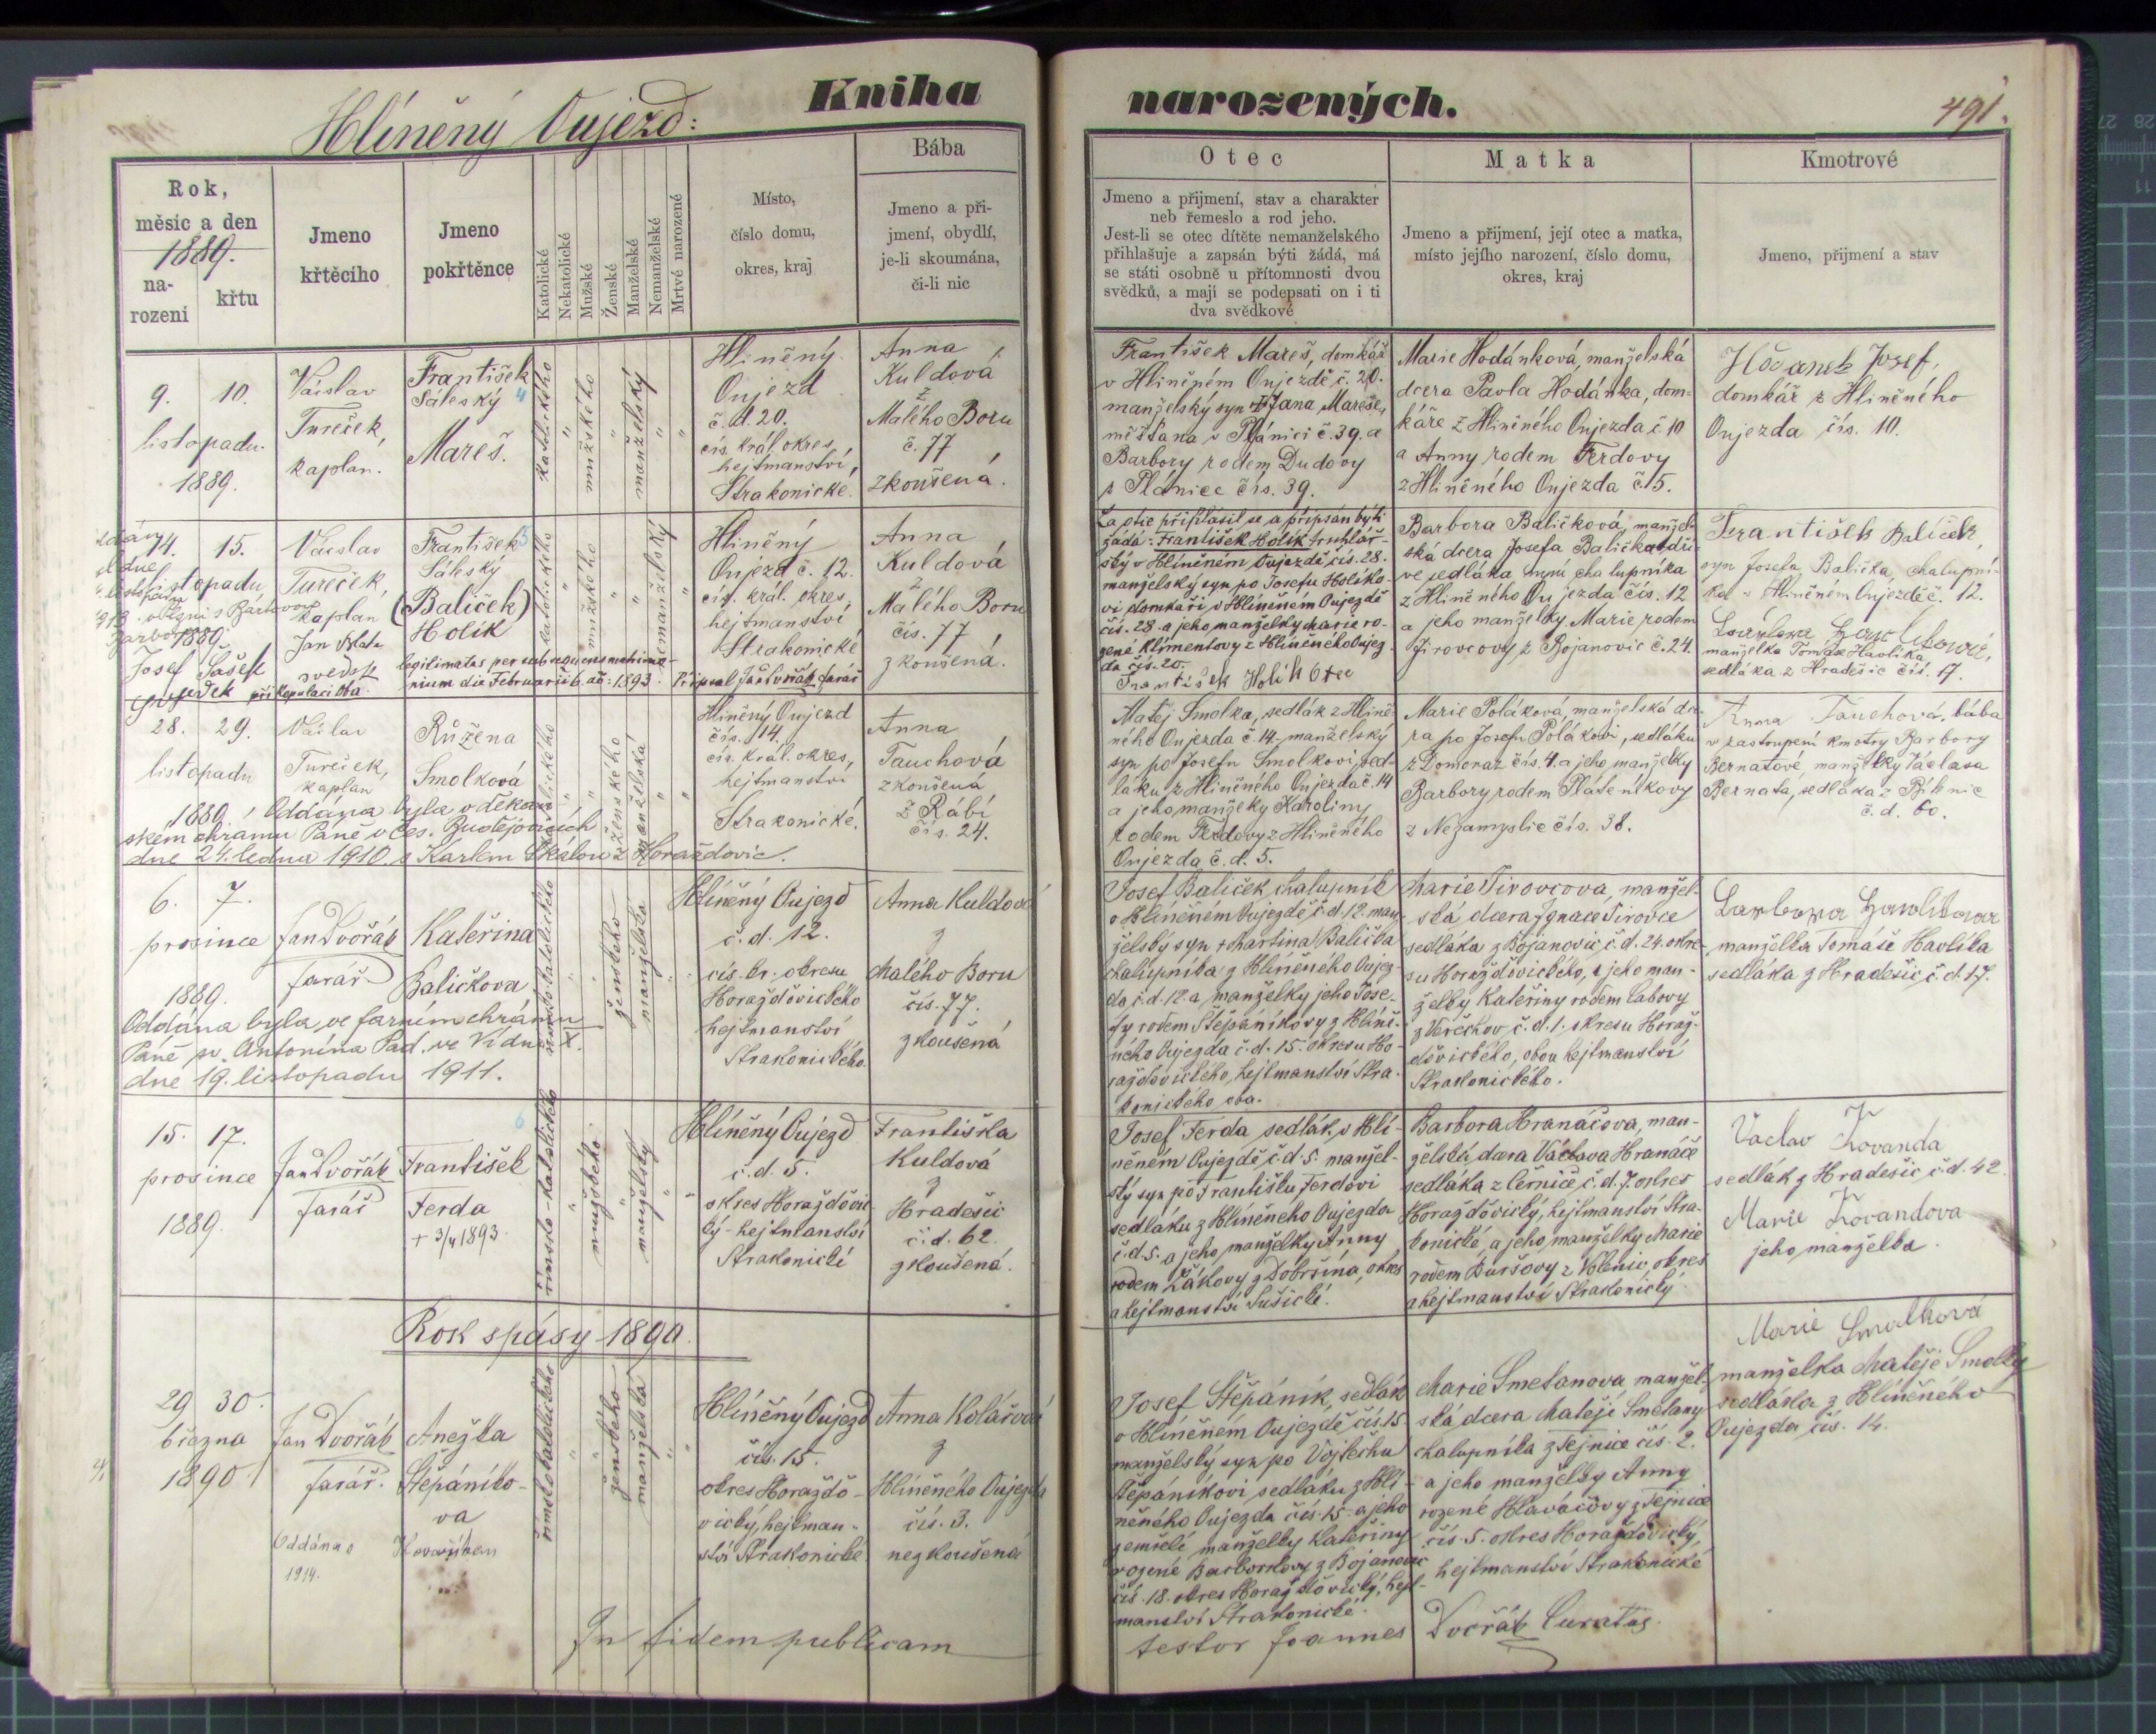 Hlíněný Oujezd:
Kniha
Rok,
měsíc a den
1889.
na-
rozeni
křtu
Jmeno
křtěcího
Jmeno
pokřtěnce
Katolické
Nekatolické
Mužské
Ženské
Manželské
Nemanželské
Mrtvé narozené
Místo,
číslo domu,
okres, kraj
Bába
Jmeno a při-
jmení, obydlí,
je-li skoumána,
či-li nic
9. 10.
listopadu.
1889.
Václav
Tureček,
kaplan.
František
Sáleský 4
Mareš.
katolického
mužského
manželský
Hliněný
Oujezd
č. d. 20.
cís. král. okres,
hejtmanství,
Strakonické.
Anna
Kuldová
z
Malého Boru
č. 77
zkoušená.
14. 15.
listopadu
1889.
Josef Šašek
svědek při kopulaci oba.
Václav
Tureček,
kaplan
Jan
svědek
František 5
Sáleský
(Balíček)
Holík
legitimatus per subsequens matrimo-
nium die Februarii 6. ao: 1893. Připsal Jan Dvořák farář
katolického
mužského
nemanželský
Hliněný
Oujezd č. 12.
cís. král. okres,
hejtmanství
Strakonické
Anna
Kuldová
z
Malého Boru
čís. 77
zkoušená.
28. 29.
listopadu
1889.
Václav
Tureček,
kaplan
Růžena
Smolková
ženského
manželská
Oddána byla v děkan-
ském chrámu Páně v Čes. Budějovicích
dne 24. ledna 1910 s Karlem Skálou z Horažďovic.
Hliněný Oujezd
čís. 14.
cís. král. okres,
hejtmanství
Strakonické.
Anna
Tauchová
zkoušená
z Rábí
čís. 24.
6. 7.
prosince
1889.
Jan Dvořák
farář
Kateřina
Balíčkova
římsko katolického
ženského
manželská
Oddána byla ve farním chrámu
Páně sv. Antonína Pad. ve Vídni X.
dne 19. listopadu 1911.
Hlíněný Oujezd
č. d. 12.
cís. kr. okresu
Horažďovického
hejtmanství
Strakonického
Anna Kuldová
z
Malého Boru
čís. 77.
zkoušená
15. 17.
prosince
1889.
Jan Dvořák
farář
6
František
Ferda
+ 3/4 1893.
římsko-katolického
mužského
manželský
Hlíněný Oujezd
č. d. 5.
okres Horažďovic-
ký-hejtmanství
Strakonické
Františka
Kuldová
z
Hradešic
č. d. 62.
zkoušená.
Rok spásy 1890.
29 30.
března
1890.
Jan Dvořák
farář.
Anežka
Štěpániko-
va
Oddána s
1914.
římsko katolického
ženského
manželská
Hlíněný Oujezd
čís. 15.
okres Horažďo-
vický, hejtman-
ství Strakonické
Anna Kolářová
z
Hlíněného Oujezda
čís. 3.
nezkoušená
In fidem publicam
narozených.
491.
Otec
Jmeno a přijmení, stav a charakter
neb řemeslo a rod jeho.
Jest-li se otec dítěte nemanželského
přihlašuje a zapsán býti žádá, má
se státi osobně u přítomnosti dvou
svědků, a maji se podepsati on i ti
dva svědkové
Matka
Jmeno a přijmení, její otec a matka,
místo jejího narození, číslo domu,
okres, kraj
Kmotrové
Jmeno, přijmení a stav
František Mareš, domkář
v Hliněném Oujezdě č. 20.
manželský syn Jana Mareše,
měšťana v Plánici č. 39. a
Barbory rodem Dudovy
z Planice čís. 39.
Marie Hodánková, manželská
dcera Pavla Hodánka, dom-
káře z Hliněného Oujezda č 10
a Anny rodem Ferdovy
z Hliněného Oujezda č. 5.
Josef,
domkář z Hliněného
Oujezda čís. 10.
Za otce přihlásil se a připsán býti
žádá: František Holík truhlář-
ský v Hlíněném Oujezdě čís. 28.
manželský syn po Josefu Holíko-
vi domkáři v Hlíněném Oujezdě
čís. 28 a jeho manželky Marie ro-
zené Klimentovy z Hlíněného Oujez-
da čís. 20.
František Holík Otec
Barbora Balíčková, manžel-
ská dcera Josefa Balíčka dří-
ve sedláka nyní chalupníka
z Hliněného Oujezda čís. 12
a jeho manželky Marie rodem
Jirovcovy z Bojanovic č. 24.
František Balíček,
syn Josefa Balíčka, chalupní-
ka v Hliněném Oujezdě č. 12.
manželka Tomáše Havlíka
sedláka z Hradešic čís. 17.
Matěj Smolka, sedlák z Hlině-
ného Oujezda č. 14. manželský
syn po Josefu Smolkovi, sed-
láku z Hliněného Oujezda č. 14
a jeho manželky Karoliny
rodem Ferdovy z Hliněného
Oujezda č. d. 5.
Marie Poláková, manželská dce-
ra po Josefu Polákovi, sedláku
z Domoraz čís. 4. a jeho manželky
Barbory rodem Plátenikovy
z Nezamyslic čís. 38.
Anna Tauchová, bába
v zastoupení kmotry Barbory
Bernatové, manželky Václava
Bernata, sedláka z
č. d. 60.
Josef Balíček, chalupník
v Hlíněném Oujezdě č. d. 12. man-
želský syn + Martina Balíčka
chalupníka z Hlíněného Oujez-
da č. d. 12. a manželky jeho Jose-
fy rodem Štěpánikovy z Hlíně-
ného Oujezda č. d. 15. okresu Ho-
ražďovického, hejtmanství Stra-
konického oba.
Marie Jirovcova, manžel-
ská dcera Ignace Jirovce
sedláka z Bojanovic č. d. 24. okre-
su Horažďovického, a jeho man-
želky Kateřiny rodem Cabovy
z Věřechov č. d. 1. okresu Horaž-
ďovického, obou hejtmanství
Strakonického.
manželka Tomáše Havlíka
sedláka z Hradešic č. d. 17.
Josef Ferda sedlák v Hlí-
něném Oujezdě č. d. 5. manžel-
ský syn po Františku Ferdovi
sedláku z Hlíněného Oujezda
č. d. 5. a jeho manželky Anny
rodem Žákovy z Dobršína, okres
a hejtmanství Sušické.
Barbora Hranáčova, man-
želská dcera Václava Hranáče
sedláka z Černíče č. d. 7. okres
Horažďovický, hejtmanství Stra-
konické, a jeho manželky Marie
rodem Buršovy z Volenic, okres
a hejtmanství Strakonický
Václav Kovanda
sedlák z Hradešic č. d. 42.
Marie Kovandova
jeho manželka.
Josef Štěpánik, sedlák
v Hlíněném Oujezdě čís. 15.
manželský syn po Vojtěchu
Štěpánikovi sedláku z Hlí-
něného Oujezda čís. 15. a jeho
zemřelé manželky Kateřiny
rozené z Bojanovic
čís. 18. okres Horažďovický, hejt-
manství Strakonické.
Marie Smetanova manžel-
ská dcera Matěje Smetany
chalupníka z Tejnice čís. 2.
a jeho manželky Anny
rozené Hlaváčovy z Tejnice
čís. 5. okres Horažďovický,
hejtmanství Strakonické
Marie Smolková
manželka Matěje Smolky
sedláka z Hlíněného
Oujezda čís. 14.
testor Joannes Dvořák Curatus.